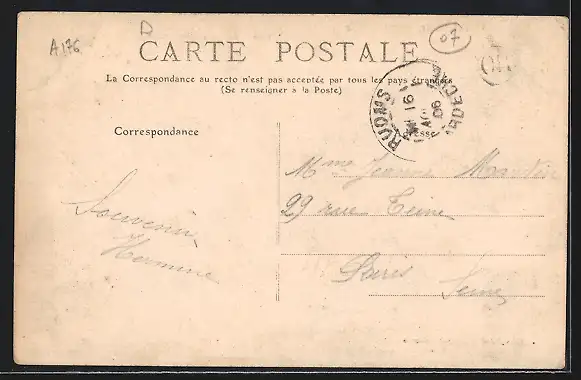 A176
D
07
CARTE POSTALE
La Correspondance au recto n'est pas acceptée par tous les pays étrangers
(Se renseigner a la Poste)
RUOMS
16
06
ARDECHE
OR
Correspondance
Adresse
Mme Jeanne
29 rue
Paris
Seine
Souvenir
Hermine